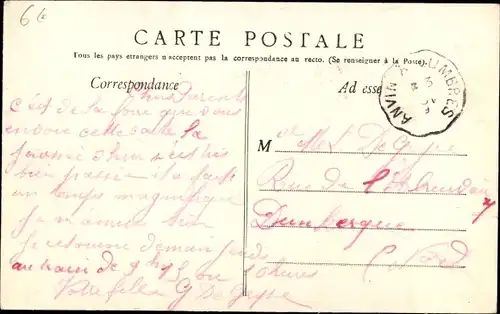 6 6
CARTE POSTALE
Tous les pays étrangers n'acceptent pas la correspondance au recto. (Se renseigner à la Poste).
Correspondance
Ad esse
LUMBRES
ANVIN
Chers Parents
c'est de la foire que vous
envoie cette carte la
journée d'hier s'est
bien passée il a fait
un temps magnifique
je m'amuse bien
Je retourne demain jeudi
au train de 9 h ou heures
Votre fille G De
M
Rue de l'Abreuvoir
Dunkerque
Nord